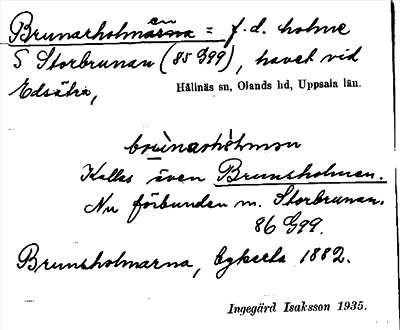 Brunarholmen = f.d. holme
S Storbrunan (85 G99), havet vid
Edsätra,
Hållnäs sn, Olands hd, Uppsala län.
brùnarhòlmən
Kallas även Brunsholmen.
Nu förbunden m. Storbrunan.
86 G99.
Brunsholmarna, lyksela 1882.
Ingegärd Isaksson 1935.